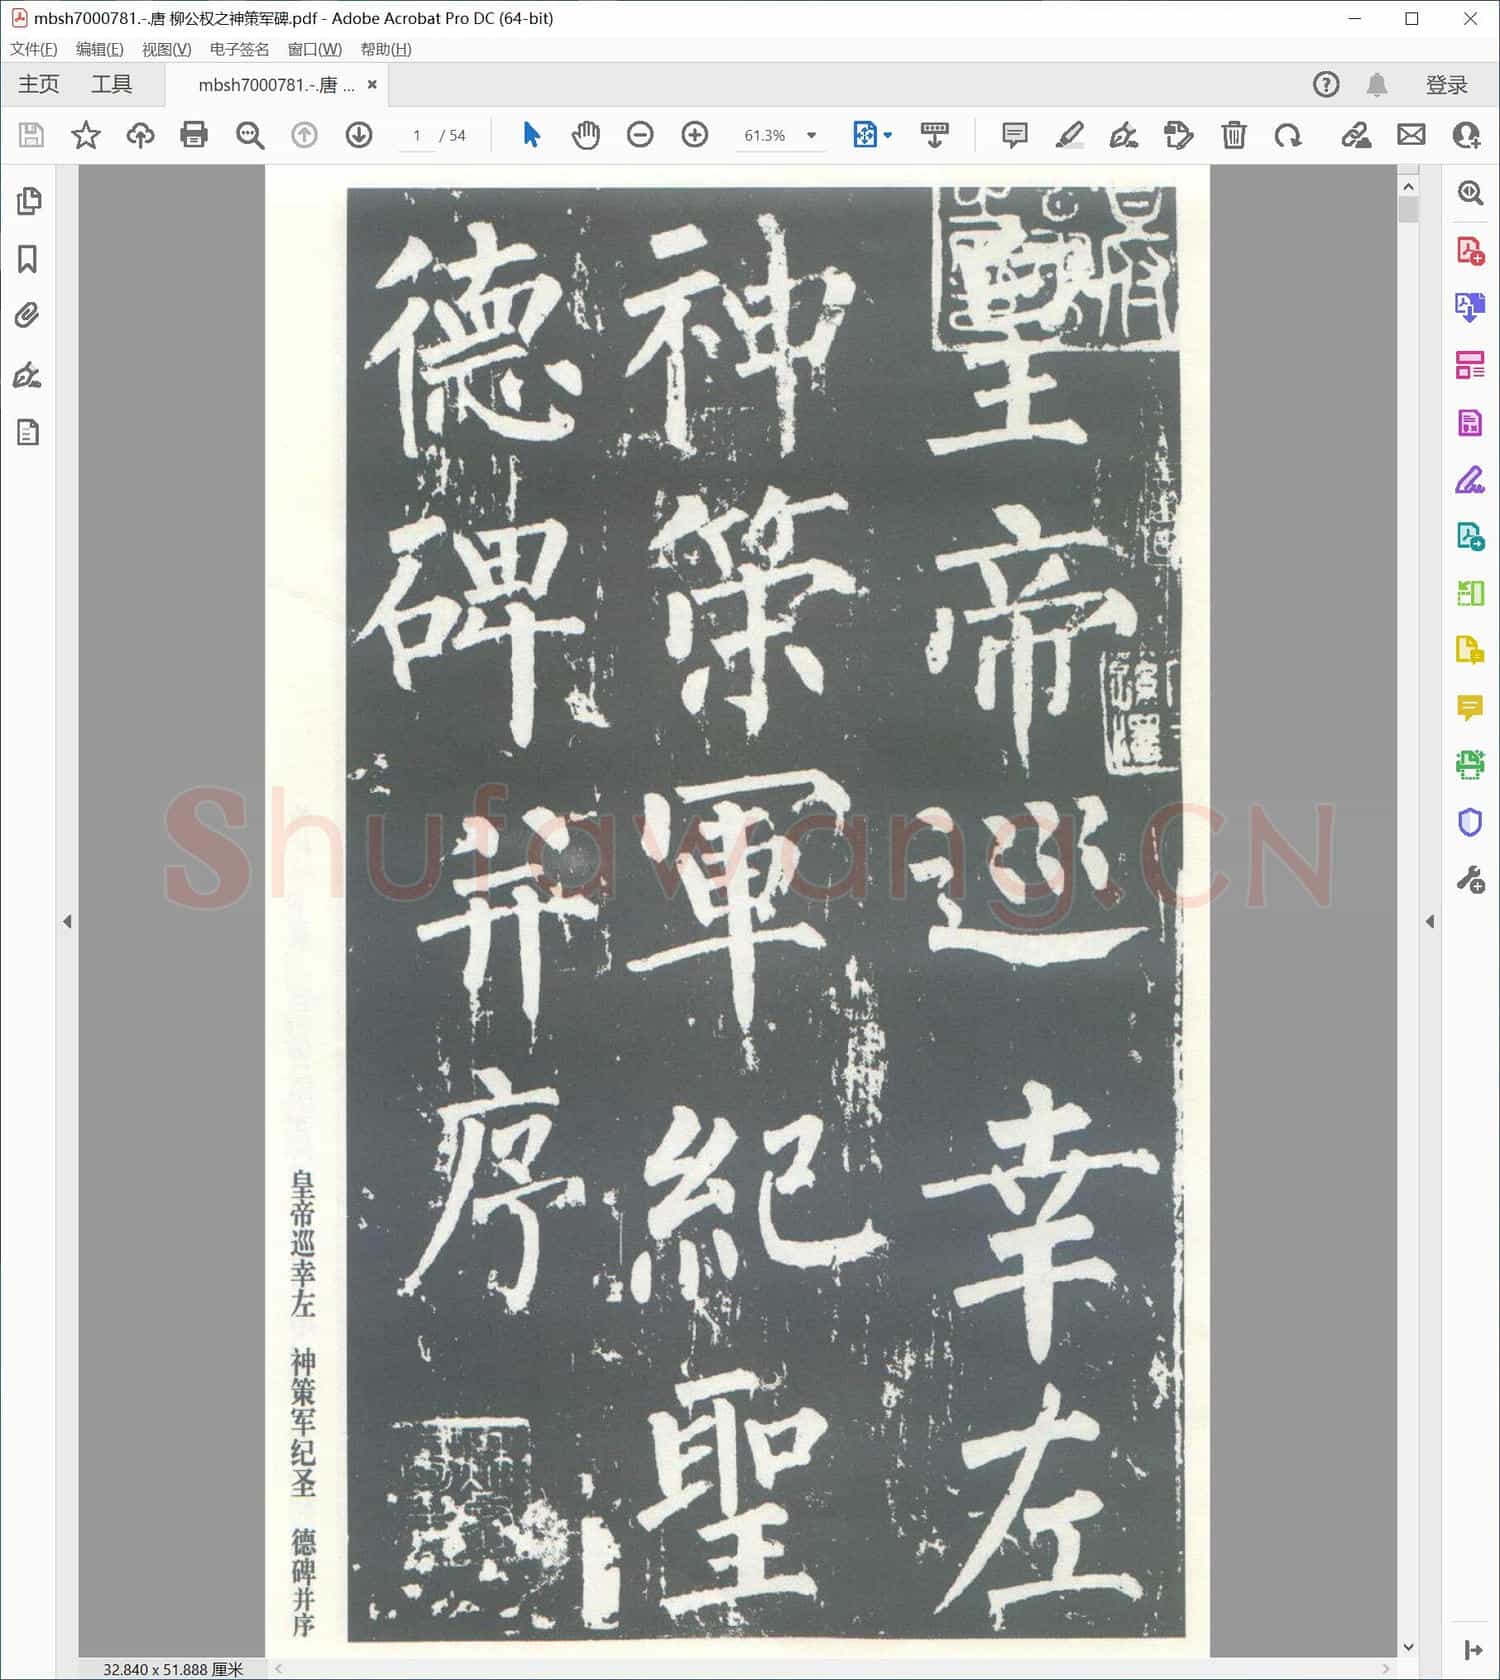 mbsh7000781.-.唐 柳公权之神策军碑.pdf - Adobe Acrobat Pro DC (64-bit)
文件(F) 编辑(E) 视图(V) 电子签名 窗口(W) 帮助(H)
主页 工具 mbsh7000781.-.唐 ... 登录
1 / 54 61.3%
皇帝巡幸左
神策軍紀聖
德碑并序
皇帝巡幸左 神策军纪圣 德碑并序
Shufawang.CN
32.840 x 51.888 厘米